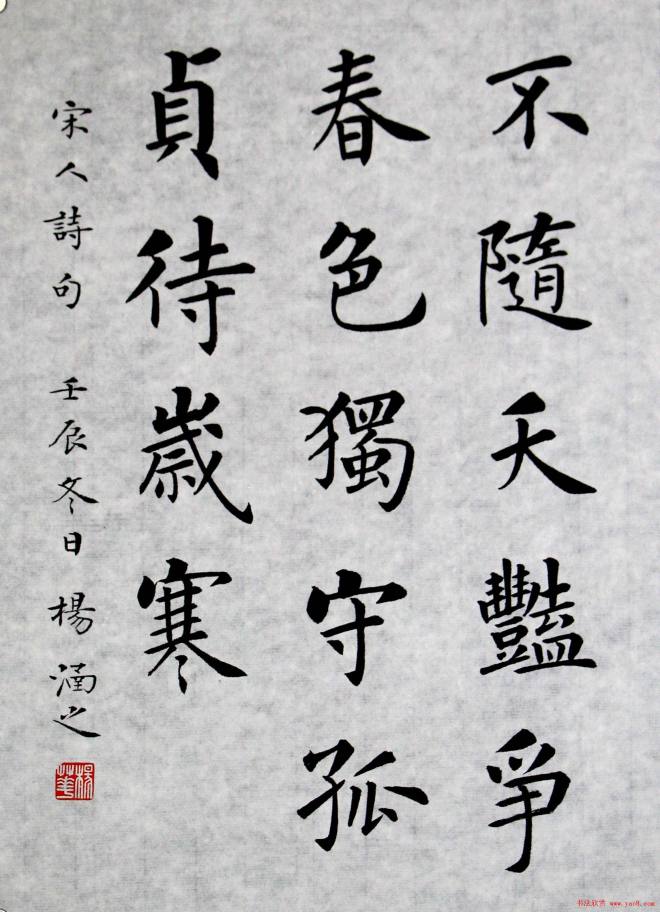 不隨夭豔爭
春色獨守孤
貞待歲寒
宋人詩句 壬辰冬日 楊涵之
书法欣赏 www.yac8.com